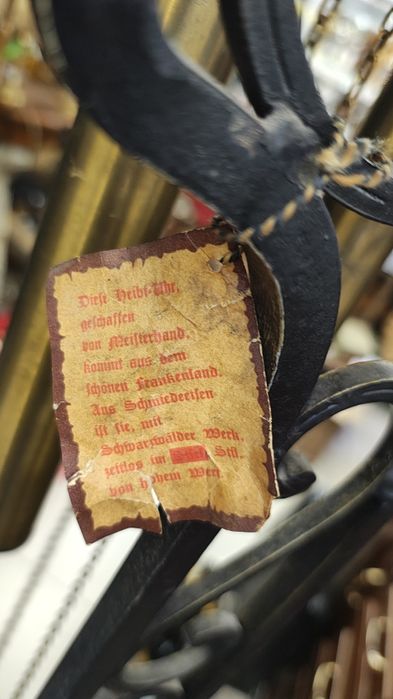 Diese Heibi-Uhr,
geschaffen
von Meisterhand,
kommt aus dem
schönen Frankenland.
Aus Schmiedeeisen
ist sie, mit
Schwarzwälder Werk,
zeitlos im Stil,
von hohem Wert.